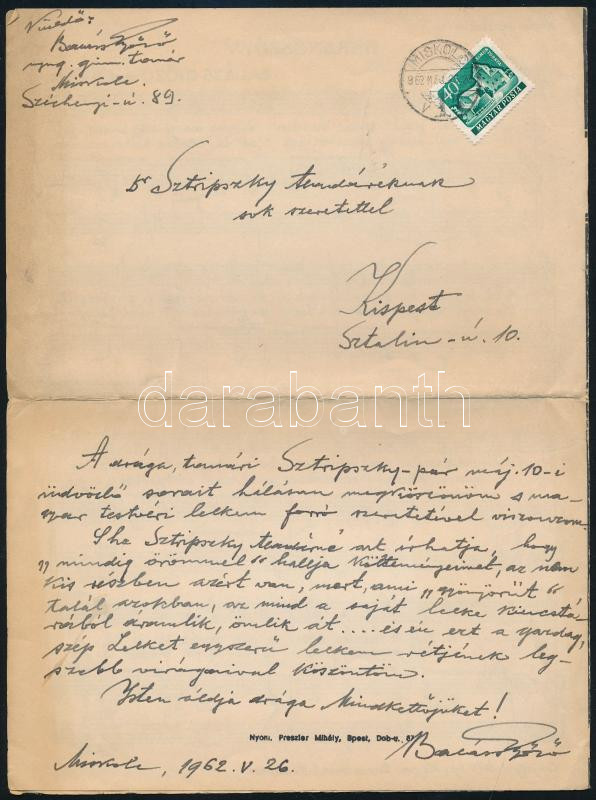 Küldő:
Balás Győző
nyug. gimn. tanár
Miskolc
Széchenyi-ú. 89.
MISKOLC
962
40f
MAGYAR POSTA
Dr Sztripszky Aladáréknak
sok szeretettel
Kispest
Sztalin-ú. 10.
darabanth
A drága, tanári Sztripszky-pár máj. 10-i
üdvözlő sorait hálásan megköszönöm s ma-
gyar testvéri lelkem forró szeretetével viszonzom.
Sztripszky Aladárné azt írhatja, hogy
„mindig örömmel" hallja költeményeimet, az nem
kis részben azért van, mert, ami „gyönyörűt"
talál azokban, az mind a saját lelke kincstá-
rából áramlik, ömlik át .... és én ezt a gazdag,
szép Lelket egyszerű lelkem rétjének leg-
szebb virágaival köszöntöm.
Isten áldja drága Mindkettőjüket!
Nyom. Preszler Mihály, Bpest, Dob-u.
Balás Győző
Miskolc, 1962. V. 26.